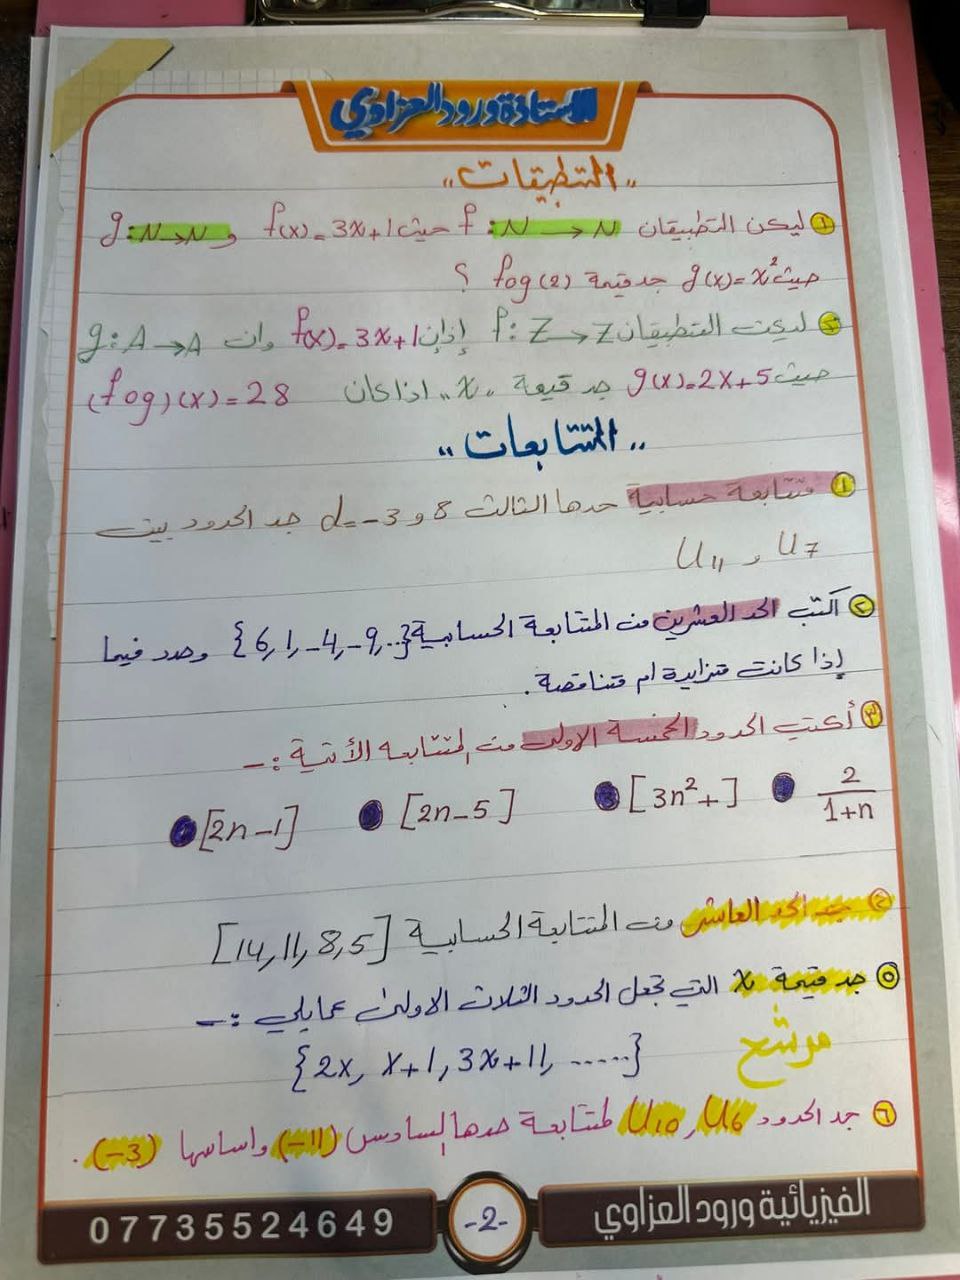 الاستاذة ورود العزاوي
,, التطبيقات ,,
١ ليكن التطبيقان f: N → N حيث f(x)= 3x+1 و g: N → N
حيث g(x)= x² جد قيمة fog(2) ؟
٢ ليكن التطبيقان f: Z → Z إذ إن f(x)= 3x+1 وان g: A → A
حيث g(x)=2x+5 جد قيمة ,,x,, اذا كان (fog)(x)=28
,, المتتابعات ,,
١ متتابعة حسابية حدها الثالث 8 و d=-3 جد الحدود بين
U7 و U11
٢ اكتب الحد العشرين من المتتابعة الحسابية {6, 1, -4, -9, ..} وحدد فيما
إذا كانت متزايدة ام متناقصة.
٣ أكتب الحدود الخمسة الاولى من المتتابعه الأتية :-
[2n-1] [2n-5] [3n²+] 2/1+n
٤ جد الحد العاشر من المتتابعة الحسابية [14, 11, 8, 5]
٥ جد قيمة x التي تجعل الحدود الثلاث الاولى عمايلي :-
{2x, x+1, 3x+11, .....} مرشح
٦ جد الحدود U10, U6 لمتتابعة حدها السادس (-11) واساسها (-3) .
07735524649 -2- الفيزيائية ورود العزاوي